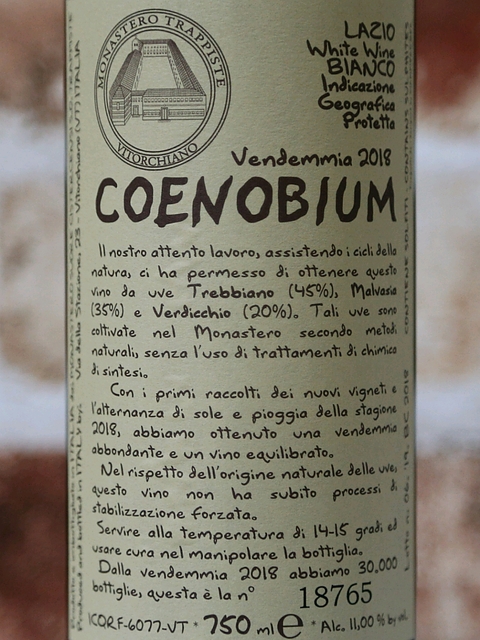 MONASTERO TRAPPISTE
VITORCHIANO
LAZIO
White Wine
BIANCO
Indicazione
Geografica
Protetta
Vendemmia 2018
COENOBIUM
Il nostro attento lavoro, assistendo i cicli della
natura, ci ha permesso di ottenere questo
vino da uve Trebbiano (45%), Malvasia
(35%) e Verdicchio (20%). Tali uve sono
coltivate nel Monastero secondo metodi
naturali, senza l'uso di trattamenti di chimica
di sintesi.
Con i primi raccolti dei nuovi vigneti e
l'alternanza di sole e pioggia della stagione
2018, abbiamo ottenuto una vendemmia
abbondante e un vino equilibrato.
Nel rispetto dell'origine naturale delle uve,
questo vino non ha subito processi di
stabilizzazione forzata.
Servire alla temperatura di 14-15 gradi ed
usare cura nel manipolare la bottiglia.
Dalla vendemmia 2018 abbiamo 30.000
bottiglie, questa è la n° 18765
ICQRF-6077-VT * 750 ml e * Alc. 11,00 % by vol.
Produced and bottled in ITALY by:
Via della Stazione, 23 - Vitorchiano (VT) ITALIA